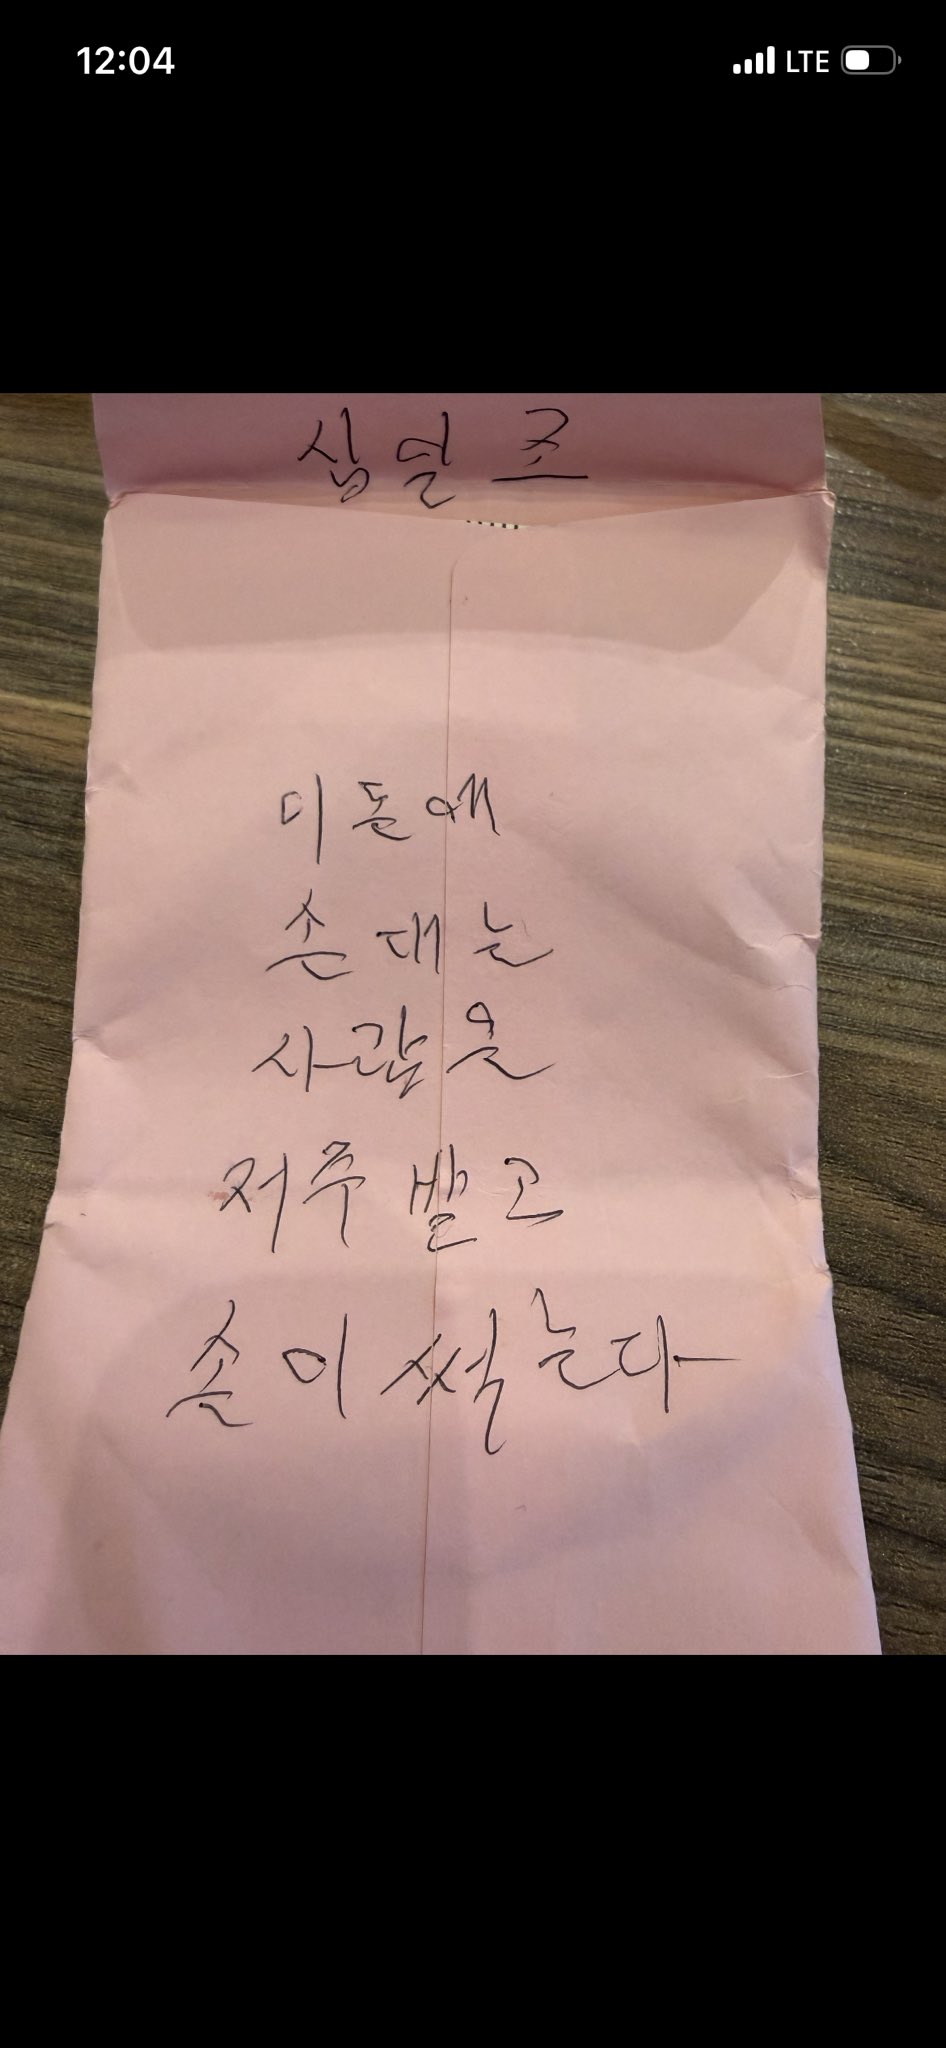 12:04
LTE
십일조
이돈에
손대는
사람은
저주받고
손이썩는다